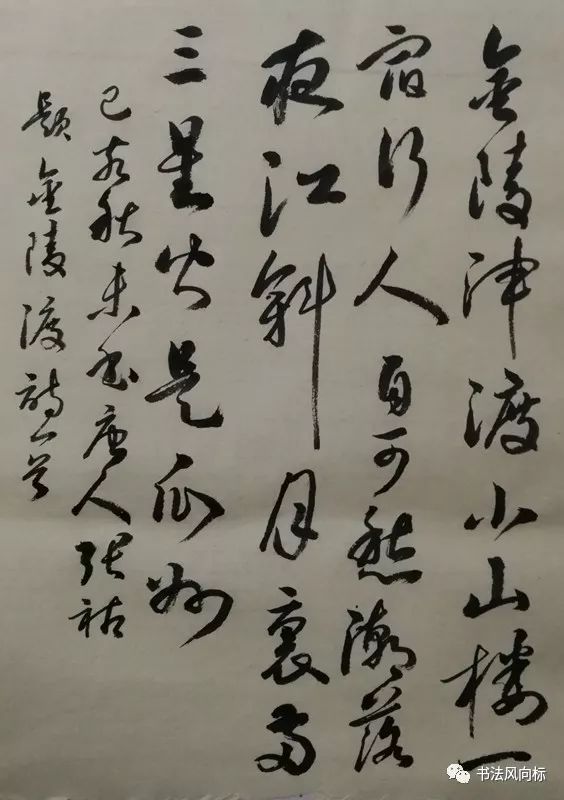 金陵津渡小山楼一
宿行人自可愁潮落
夜江斜月裏两
三星火是瓜州
己亥秋末书唐人张祜
题金陵渡诗一首
书法风向标